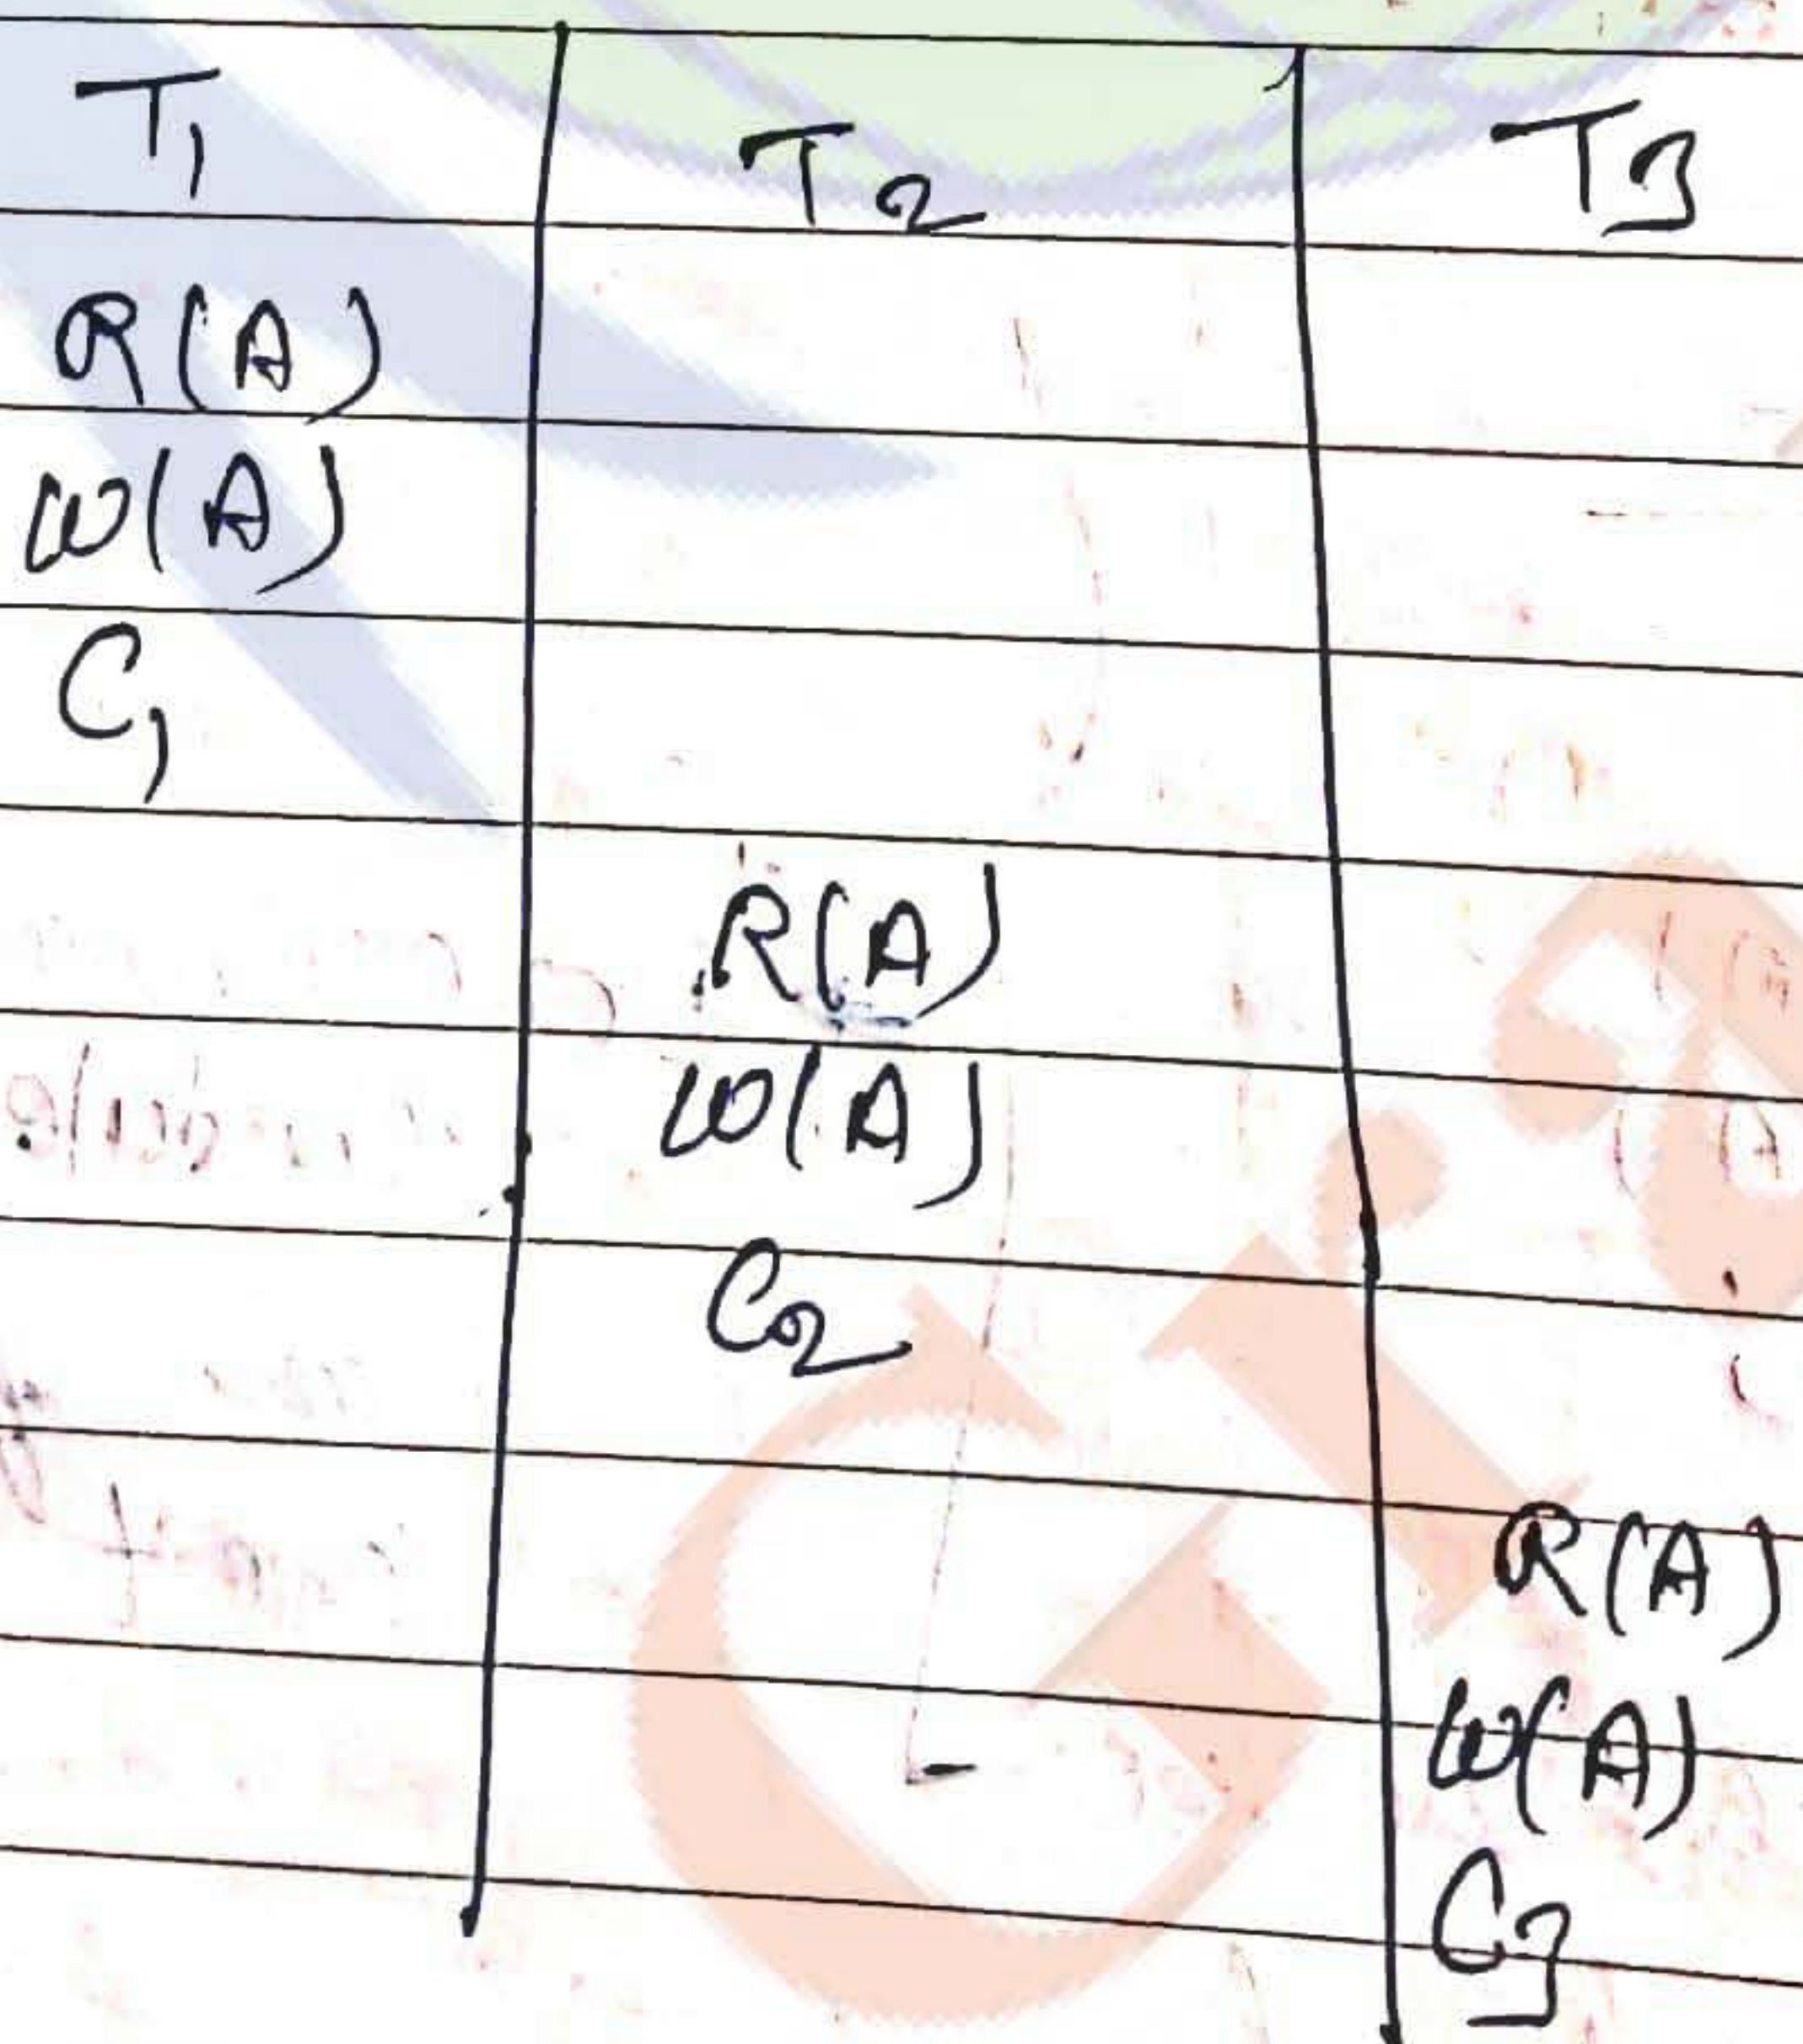 T1 T2 T3
R(A)
W(A)
C1
R(A)
W(A)
C2
R(A)
W(A)
C3